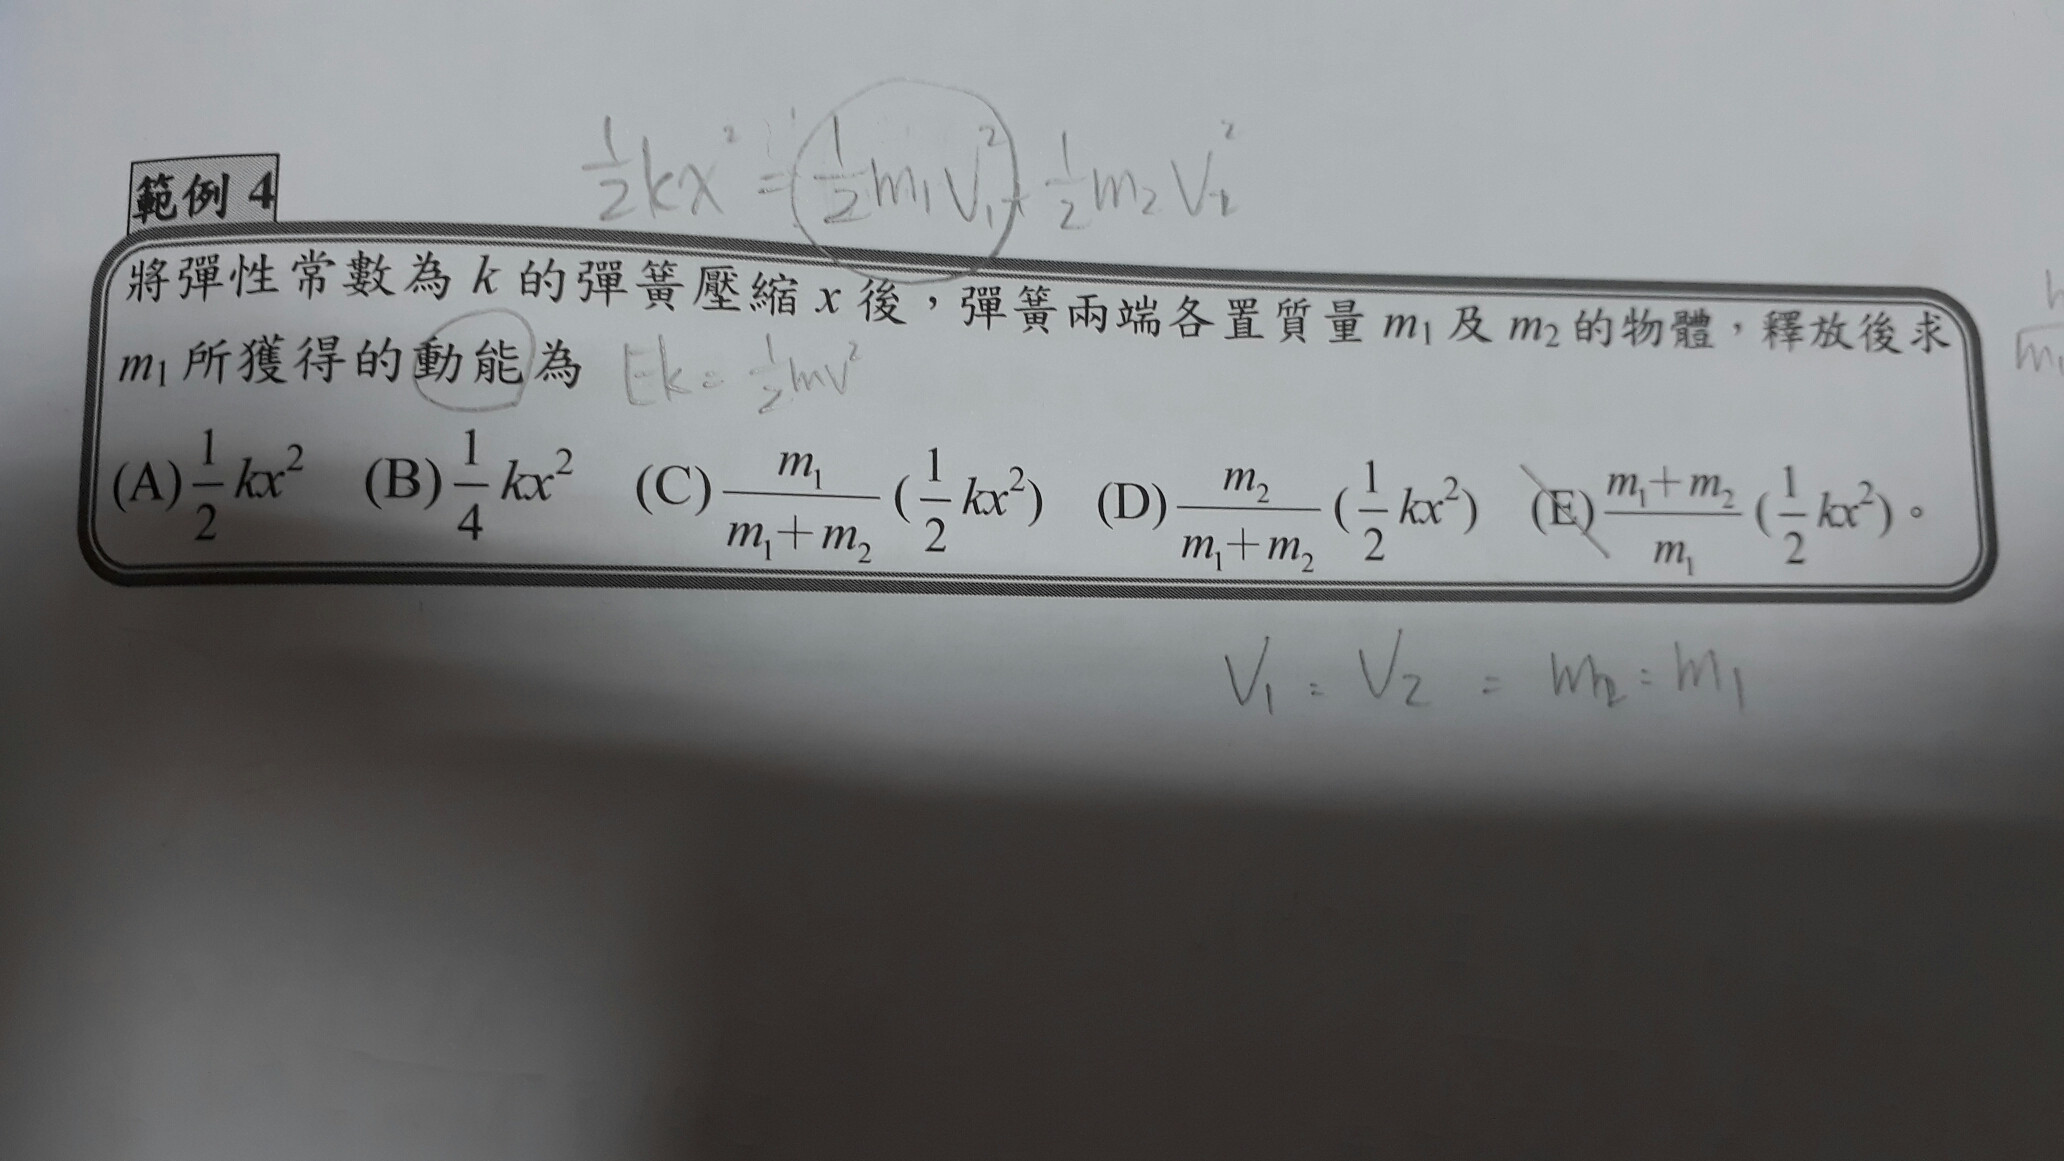 ½kx² = ½m₁v₁² + ½m₂v₂²
範例 4
將彈性常數為 k 的彈簧壓縮 x 後，彈簧兩端各置質量 m₁ 及 m₂ 的物體，釋放後求
m₁ 所獲得的動能為 Ek = ½mv²
(A) ½kx² (B) ¼kx² (C) m₁/(m₁+m₂) (½kx²) (D) m₂/(m₁+m₂) (½kx²) (E) (m₁+m₂)/m₁ (½kx²)。
V₁ : V₂ = m₂ : m₁